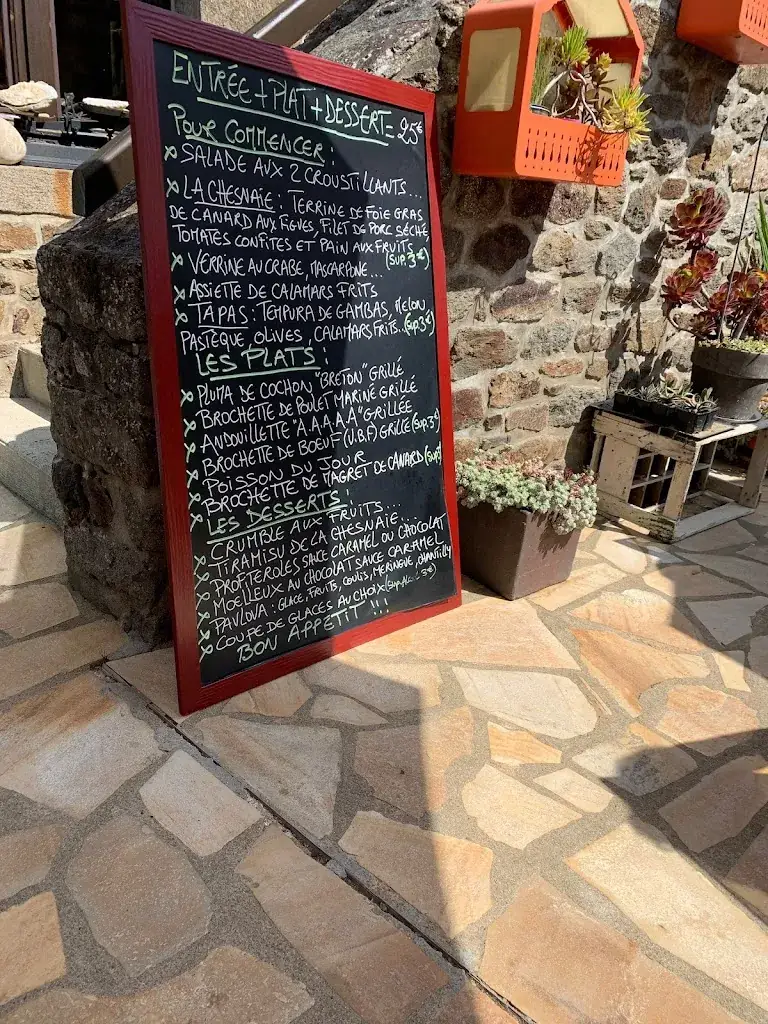 ENTRÉE + PLAT + DESSERT = 25€
POUR COMMENCER :
x SALADE AUX 2 CROUSTILLANTS...
x LA CHESNAIE : TERRINE DE FOIE GRAS
DE CANARD AUX FIGUES, FILET DE PORC SÉCHÉ,
TOMATES CONFITES ET PAIN AUX FRUITS (SUP. 3€)
x VERRINE AU CRABE, MASCARPONE...
x ASSIETTE DE CALAMARS FRITS
x TAPAS : TEMPURA DE GAMBAS, MELON,
PASTÈQUE, OLIVES, CALAMARS FRITS.. (SUP 3€)
LES PLATS :
x PLUMA DE COCHON "BRETON" GRILLÉ
x BROCHETTE DE POULET MARINÉ GRILLÉ
x ANDOUILLETTE "A.A.A.A.A" GRILLÉE
x BROCHETTE DE BOEUF (V.B.F) GRILLÉ (SUP. 3€)
x POISSON DU JOUR
x BROCHETTE DE MAGRET DE CANARD (SUP
LES DESSERTS :
x CRUMBLE AUX FRUITS...
x TIRAMISU DE LA CHESNAIE...
x PROFITEROLES SAUCE CARAMEL OU CHOCOLAT
x MOELLEUX AU CHOCOLAT SAUCE CARAMEL
x PAVLOVA : GLACE, FRUITS, COULIS, MERINGUE, CHANTILLY
x COUPE DE GLACES AU CHOIX (SUP. Alc. 3€)
BON APPETIT !!!